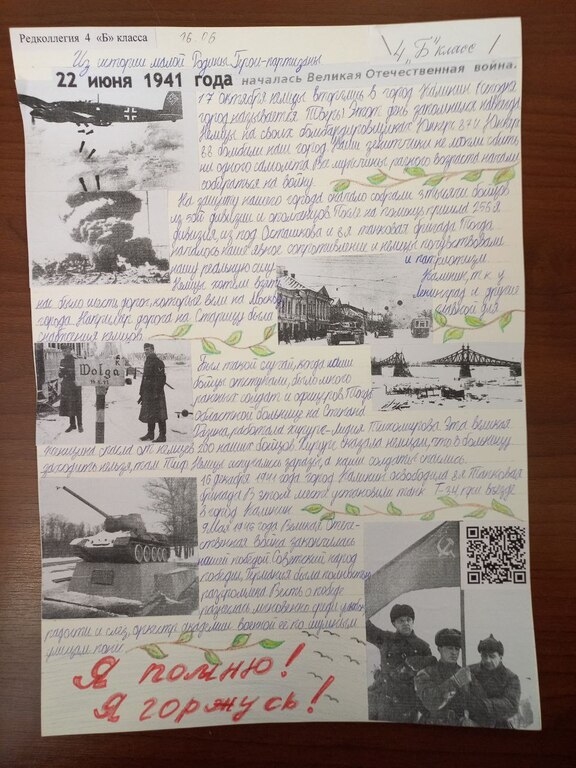 Редколлегия 4 «Б» класса
16.06
4 „Б" класс
Из истории малой Родины. Герои-партизаны.
22 июня 1941 года началась Великая Отечественная война.
17 октября немцы вторглись в город Калинин (сегодня
город называется Тверь). Этот день запомнился навсегда
Немцы на своих бомбардировщиках Юнкерс 87 и Юнкерс
88 бомбили наш город. Наши зенитчики не могли сбить
ни одного самолета. Все мужчины разного возраста начали
собираться на войну.
На защиту нашего города начало собрали 3 тысячи бойцов
из 5ой дивизии и ополченцев. После на помощь пришла 256я
дивизия, из под Осташкова и 8я танковая бригада. Тогда
началось наше явное сопротивление и немцы почувствовали
нашу реальную силу и патриотизм.
Немцы хотели взять Калинин, т. к. у
нас было шесть дорог, которые вели на Москву, Ленинград и другие
города. Например дорога на Старицу была главной для
снабжения немцев.
Wolga
Был такой случай, когда наши
бойцы отступали, было много
раненых солдат и офицеров. Тогда
областной больнице на Степана
Разина, работала хирург - Лидия Тихомирова. Эта великая
женщина спасла от немцев 200 наших бойцов. Хирург сказала немцам, что в больницу
заходить нельзя, там Тиф. Немцы испугались заразы, а наши солдаты спаслись.
16 декабря 1941 года город Калинин освободила 8я Танковая
бригада. В этом месте установили танк Т-34 при въезде
в город Калинин.
9 Мая 1945 года Великая Отече-
ственная война закончилась
нашей победой. Советский народ
победил, Германия была полностью
разгромлена. Весть о победе
разнеслась мгновенно среди
радости и слез, оркестр академии военной шумным
улицам
Я помню!
Я горжусь!